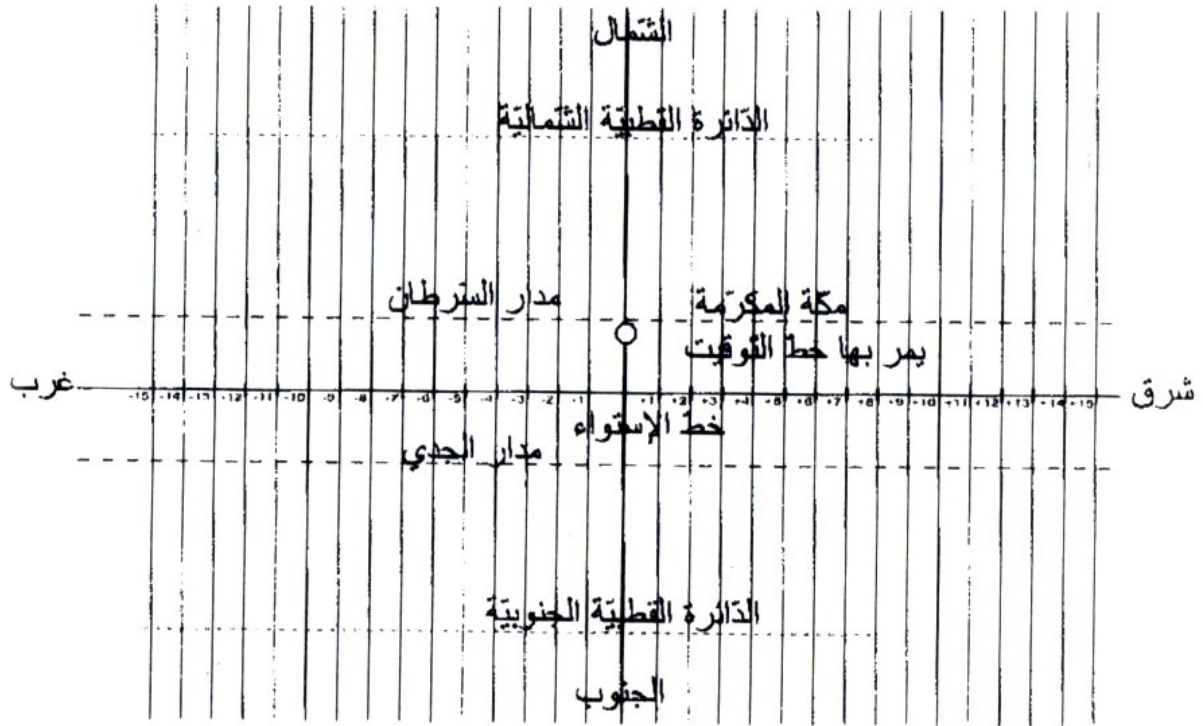 الشمال
الدّائرة القطبيّة الشّماليّة
مدار السّرطان
مكّة المكرّمة
يمر بها خطّ التّوقيت
غرب
شرق
-15 -14 -13 -12 -11 -10 -9 -8 -7 -6 -5 -4 -3 -2 -1 +1 +2 +3 +4 +5 +6 +7 +8 +9 +10 +11 +12 +13 +14 +15
خطّ الإستواء
مدار الجدي
الدّائرة القطبيّة الجنوبيّة
الجنوب